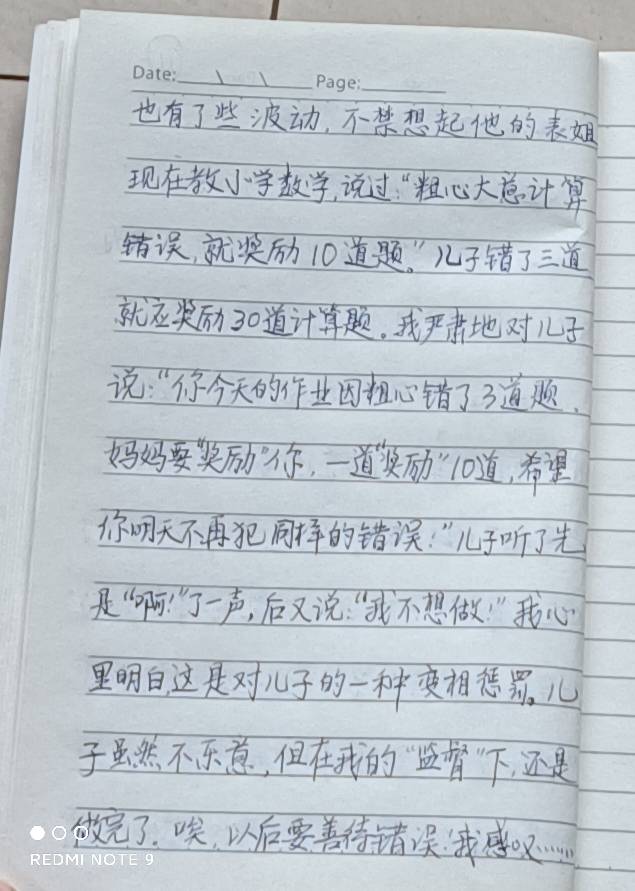 Date: \ \ Page:
也有了些波动,不禁想起他的表姐
现在教小学数学,说过:“粗心大意计算
错误,就奖励10道题。”儿子错了三道
就应奖励30道计算题。我严肃地对儿子
说:“你今天的作业因粗心错了3道题,
妈妈要“奖励”你,一道“奖励”10道,希望
你明天不再犯同样的错误!”儿子听了先
是“啊!”了一声,后又说:“我不想做!”我心
里明白,这是对儿子的一种变相惩罚。儿
子虽然不乐意,但在我的“监督”下,还是
做完了。唉,以后要善待错误!我感叹……
REDMI NOTE 9